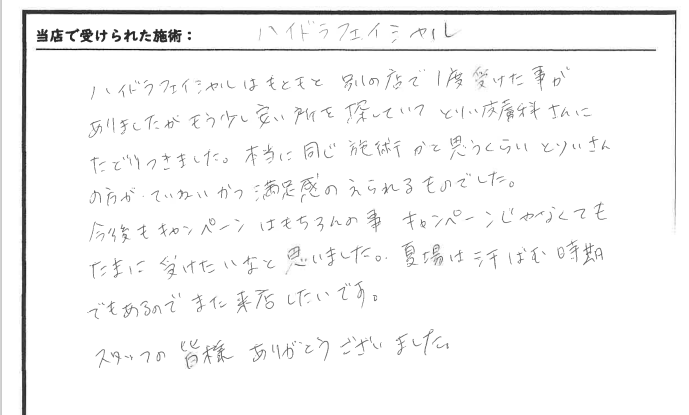 当店で受けられた施術： ハイドラフェイシャル
ハイドラフェイシャルはもともと 別の店で1度受けた事が
ありましたがもう少し安い所を探していて とりい皮膚科さんに
たどりつきました。本当に同じ施術かと思うくらい とりいさん
の方が、ていねいかつ満足感のえられるものでした。
今後もキャンペーンはもちろんの事 キャンペーンじゃなくても
たまに受けたいなと思いました。夏場は汗ばむ時期
でもあるのでまた来店したいです。
スタッフの皆様 ありがとうございました。